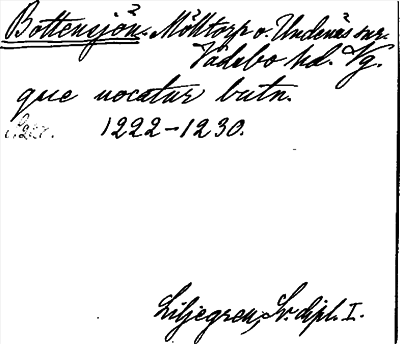 Bottensjön. Mölltorp o. Undenäs snr.
Vadsbo hd. Vg.
que uocatur butn.
1222-1230.
Liljegren, Sv. dipl. I.